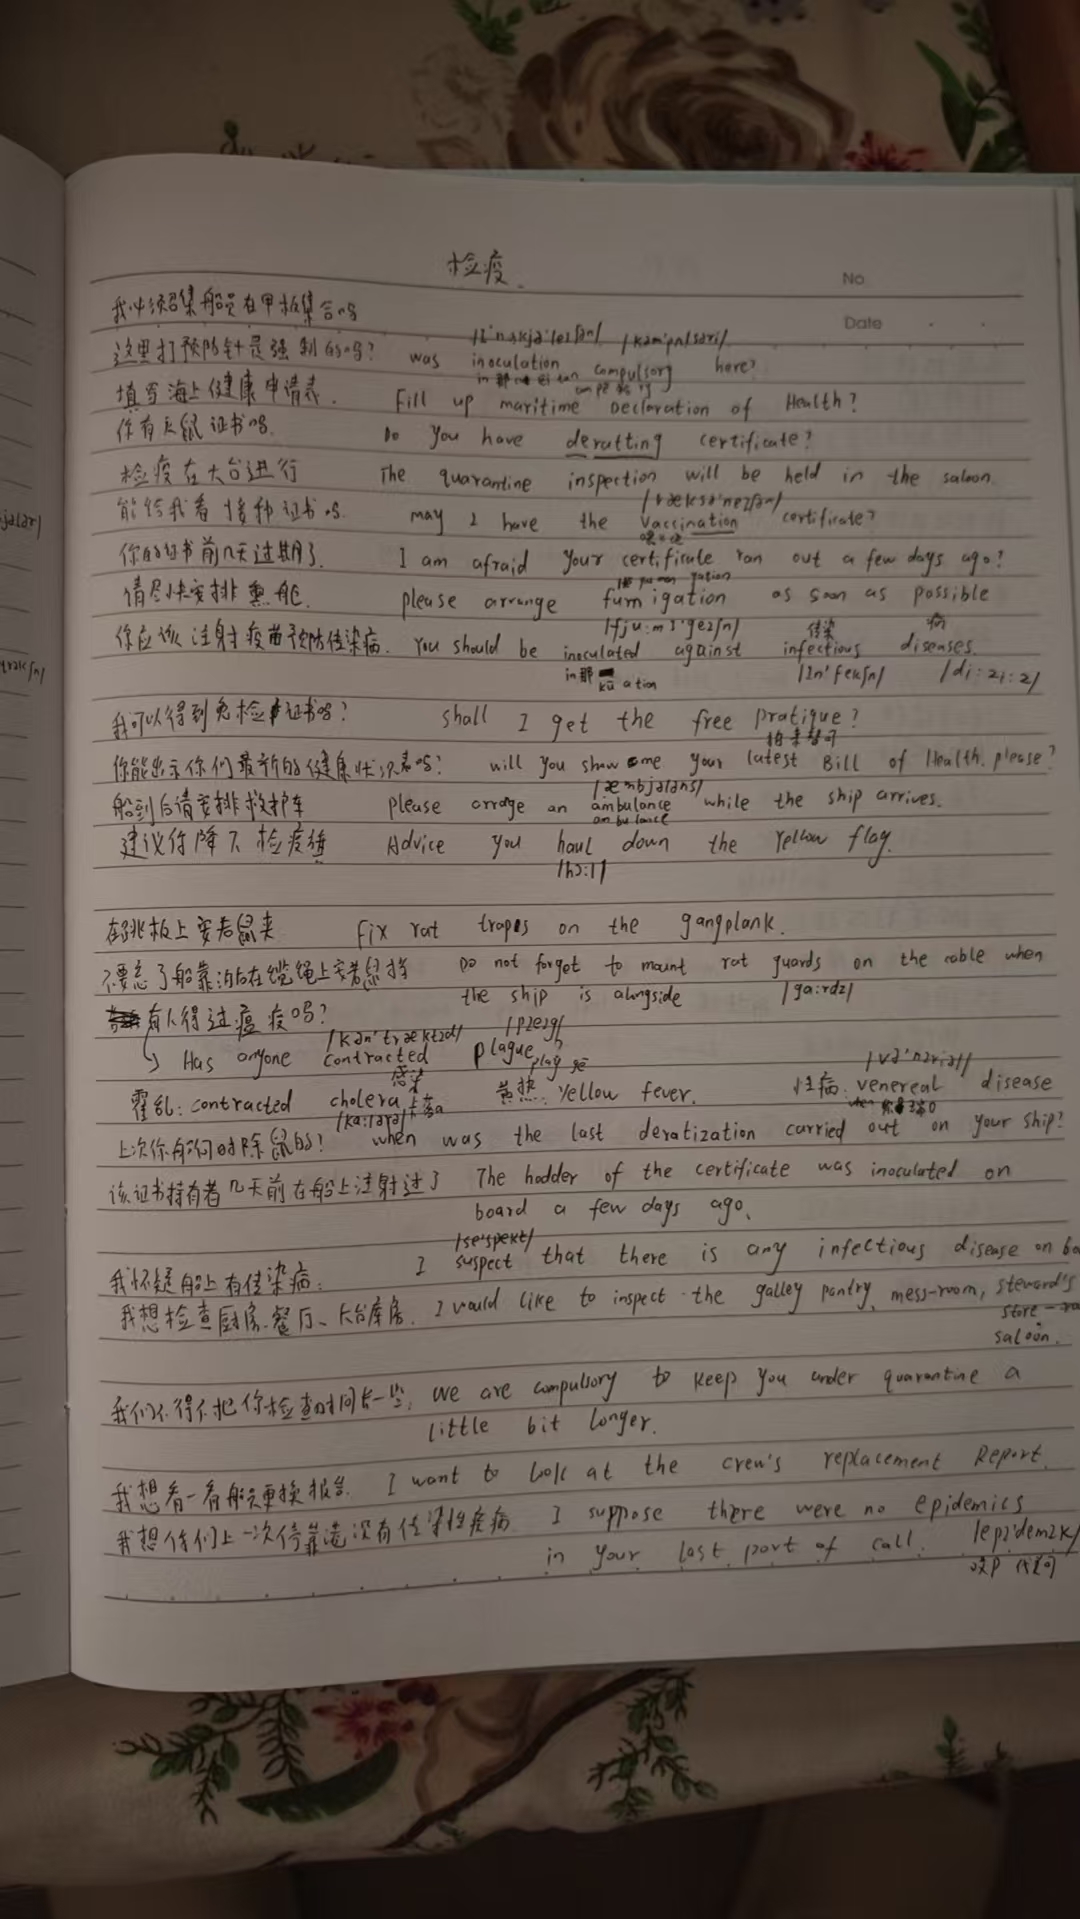 检疫.
No
Date
我必须召集船员在甲板集合吗
这里打预防针是强制的吗? was inoculation compulsory here?
填写海上健康申请表. Fill up maritime Declaration of Health?
你有灭鼠证书吗. Do you have deratting certificate?
检疫在大台进行 The quarantine inspection will be held in the saloon.
能给我看接种证书吗. may I have the Vaccination certificate?
你的证书前几天过期了. I am afraid your certificate ran out a few days ago?
请尽快安排熏舱. please arrange fumigation as soon as possible
/fju:mI'geIʃn/ 传染 病
你应该注射疫苗预防传染病. You should be inoculated against infectious diseases.
/In'fekʃn/ /di:zi:z/
我可以得到免检证书吗? shall I get the free pratique?
你能出示你们最新的健康状况表吗? will you show me your latest Bill of Health. please?
船到后请安排救护车 please arrage an ambulance while the ship arrives.
建议你降下检疫旗 Advice you haul down the Yellow flag.
/hɔ:l/
在跳板上安老鼠夹 Fix rat trapes on the gangplank.
不要忘了船靠泊后在缆绳上安老鼠挡 Do not forget to mount rat guards on the cable when
the ship is alongside /ga:rdz/
有人得过瘟疫吗?
Has anyone contracted plague?
感染
霍乱: contracted cholera 黄热: Yellow fever. 性病: venereal disease
上次你船何时除鼠的? when was the last deratization carried out on your ship?
该证书持有者几天前在船上注射过了 The hodder of the certificate was inoculated on
board a few days ago.
我怀疑船上有传染病. I suspect that there is any infectious disease on
我想检查厨房.餐厅、大台库房. I would like to inspect the galley pantry, mess-room, steward's
store
saloon.
我们不得不把你检查时间长一些. We are compulsory to keep you under quarantine a
little bit longer.
我想看一看船员更换报告. I want to look at the crew's replacement Report.
我想你们上一次停靠港没有传染性疾病 I suppose there were no epidemics
in your last port of call. /epI'demIk/